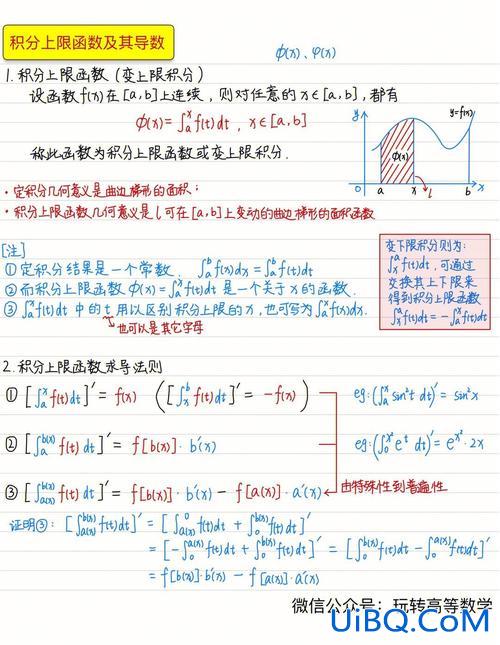 积分上限函数及其导数
ϕ(x)、φ(x)
1. 积分上限函数（变上限积分）
设函数f(x)在[a,b]上连续，则对任意的x∈[a,b]，都有
ϕ(x)=∫ₐˣf(t)dt，x∈[a,b]
称此函数为积分上限函数或变上限积分.
y
y=f(x)
ϕ(x)
0 a x l b x
·定积分几何意义是曲边梯形的面积；
·积分上限函数几何意义是l可在[a,b]上变动的曲边梯形的面积函数
[注]
①定积分结果是一个常数. ∫ₐᵇf(x)dx=∫ₐᵇf(t)dt
②而积分上限函数ϕ(x)=∫ₐˣf(t)dt是一个关于x的函数.
③∫ₐˣf(t)dt中的t用以区别积分上限的x，也可写为∫ₐˣf(x)dx.
也可以是其它字母
变下限积分则为：
∫ₓᵃf(t)dt，可通过
交换其上下限来
得到积分上限函数
∫ₓᵃf(t)dt=-∫ₐˣf(t)dt
2. 积分上限函数求导法则
①[∫ₐˣf(t)dt]′=f(x) ([∫ₓᵇf(t)dt]′=-f(x)) eg:(∫ₐˣsin²t dt)′=sin²x
②[∫ₐ^{b(x)}f(t)dt]′=f[b(x)]·b′(x) eg:(∫₀^{x²}eᵗ dt)′=e^{x²}·2x
③[∫_{a(x)}^{b(x)}f(t)dt]′=f[b(x)]·b′(x)-f[a(x)]·a′(x) 由特殊性到普遍性
证明③：[∫_{a(x)}^{b(x)}f(t)dt]′=[∫_{a(x)}^{0}f(t)dt+∫₀^{b(x)}f(t)dt]′
=[-∫₀^{a(x)}f(t)dt+∫₀^{b(x)}f(t)dt]′=[∫₀^{b(x)}f(t)dt-∫₀^{a(x)}f(t)dt]′
=f[b(x)]·b′(x)-f[a(x)]·a′(x)
微信公众号：玩转高等数学
UiBQ.COM